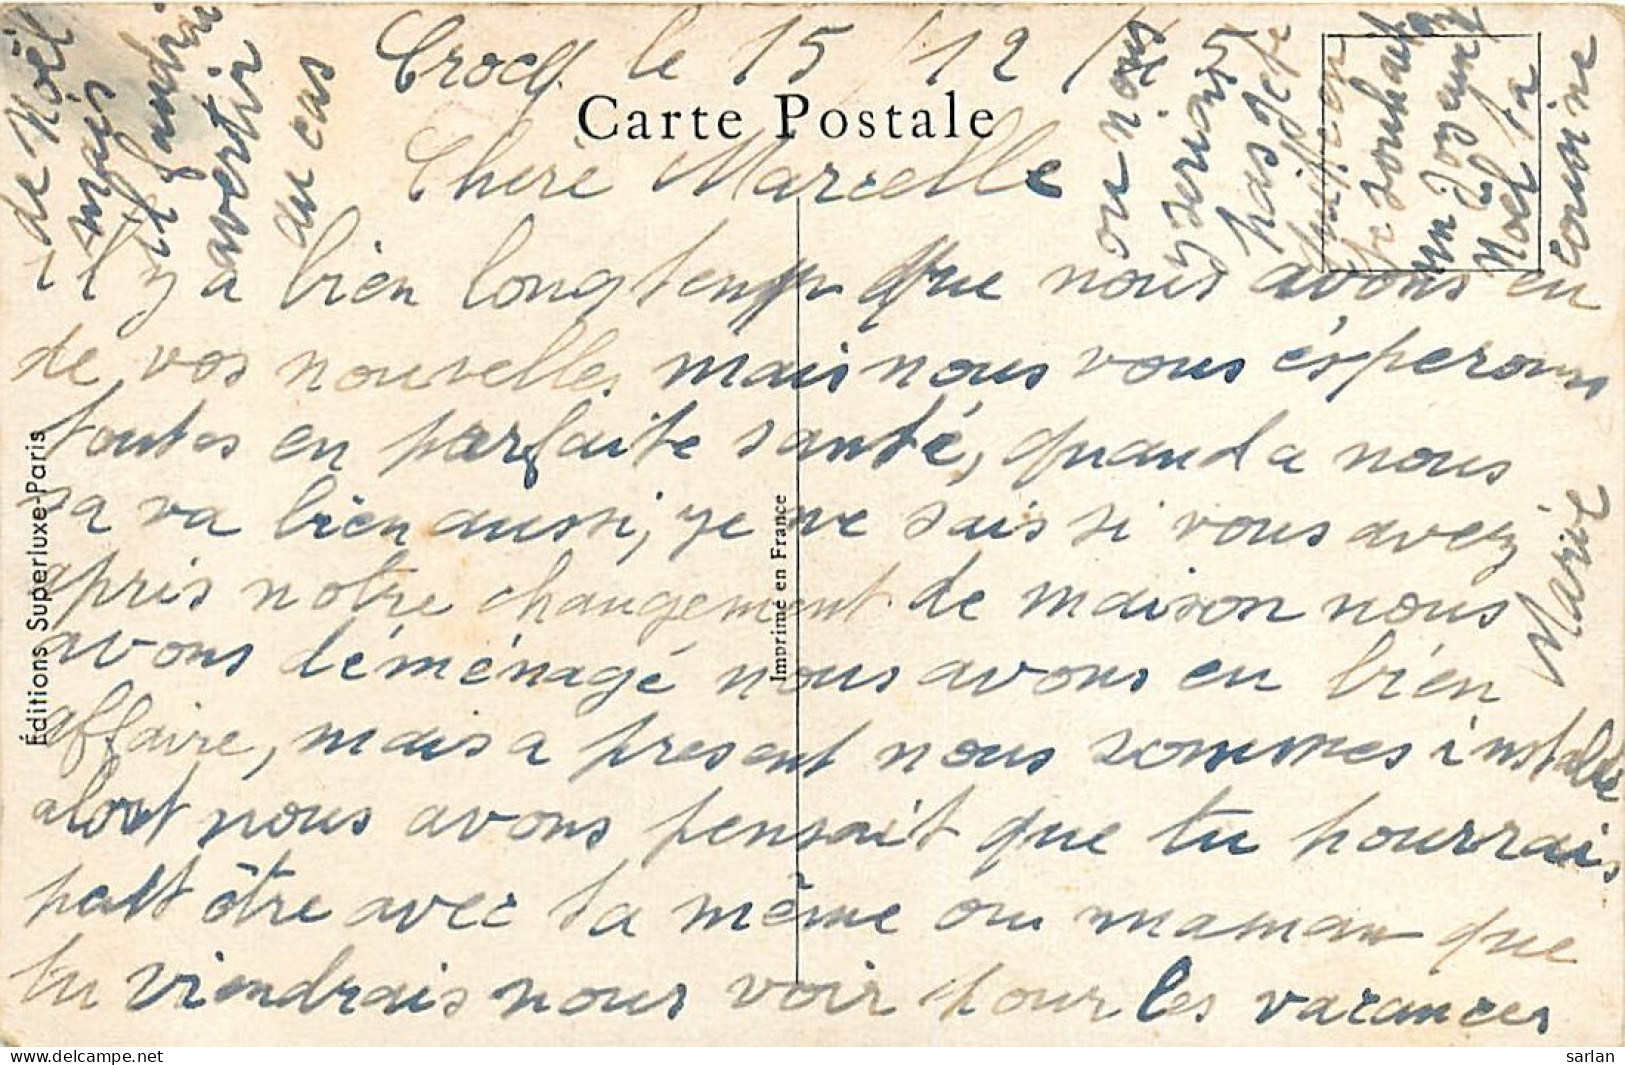 Crocq le 15/12/
Carte Postale
Cheré Marcelle
il y a bien longtemps que nous avons eu
de vos nouvelles mais nous vous ésperons
toutes en parfaite santé, quand a nous
sa va bien aussi, je ne sais si vous avez
apris notre changement de maison nous
avons déménagé nous avons eu bien
affaire, mais a present nous sommes installé
alort nous avons pensait que tu pourrais
patt être avec ta même ou maman que
tu viendrais nous voir pour les vacances
de Noël
mais
il faudrai
avertir
au cas
ou nous
y serions
pas je te
je souhaite
un Joyeux
Noel ta
cousine
Marie
Éditions Superluxe-Paris
Imprimé en France
sarlan